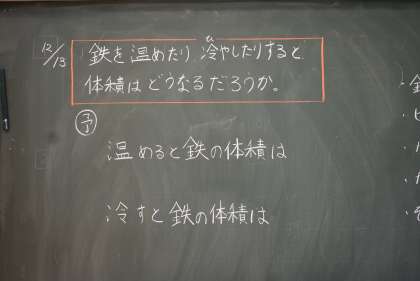 12/13
鉄を温めたり、冷やしたりすると
ひ
体積はどうなるだろうか。
予
温めると鉄の体積は
冷すと鉄の体積は